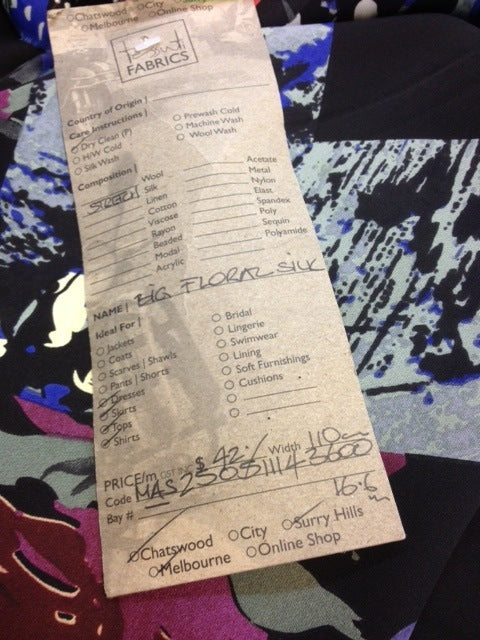 Chatswood City
Melbourne Online Shop
FABRICS
Country of Origin |
Care Instructions |
Dry Clean (P) Prewash Cold
H/W Cold Machine Wash
Silk Wash Wool Wash
Composition |
Wool Acetate
STRETCH Silk Metal
Linen Nylon
Cotton Elast
Viscose Spandex
Rayon Poly
Beaded Sequin
Modal Polyamide
Acrylic
NAME | BIG FLORAL SILK
Ideal For |
Jackets Bridal
Coats Lingerie
Scarves | Shawls Swimwear
Pants | Shorts Lining
Dresses Soft Furnishings
Skirts Cushions
Tops
Shirts
PRICE/m GST INC $ 42./ Width 110cm
Code MAS 23051114 3600
Bay # 16.6 m
Chatswood City Surry Hills
Melbourne Online Shop